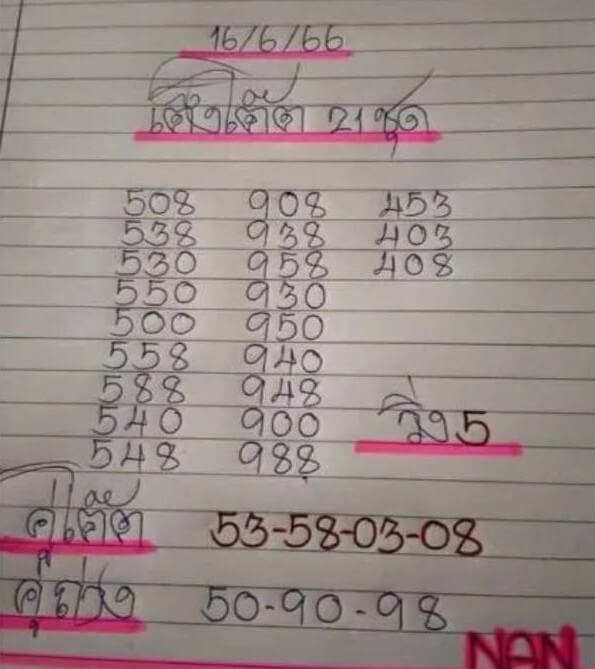 16/6/66
เต็งเด็ด 21 ชุด
508 908 453
538 938 403
530 958 408
550 930
500 950
558 940
588 948
540 900
548 988
วิ่ง 5
คู่เด็ด 53-58-03-08
คู่ 50-90-98
NAN